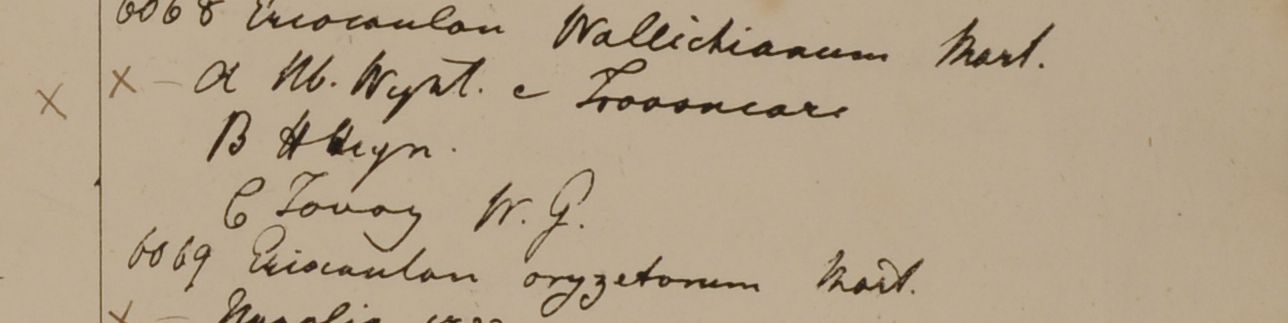 6068 Eriocaulon Wallichianum Mart.
x x - A Hb. Wight. e Travancore
B HHeyn.
C Tavoy W. G.
6069 Eriocaulon oryzetorum Mart.
x -